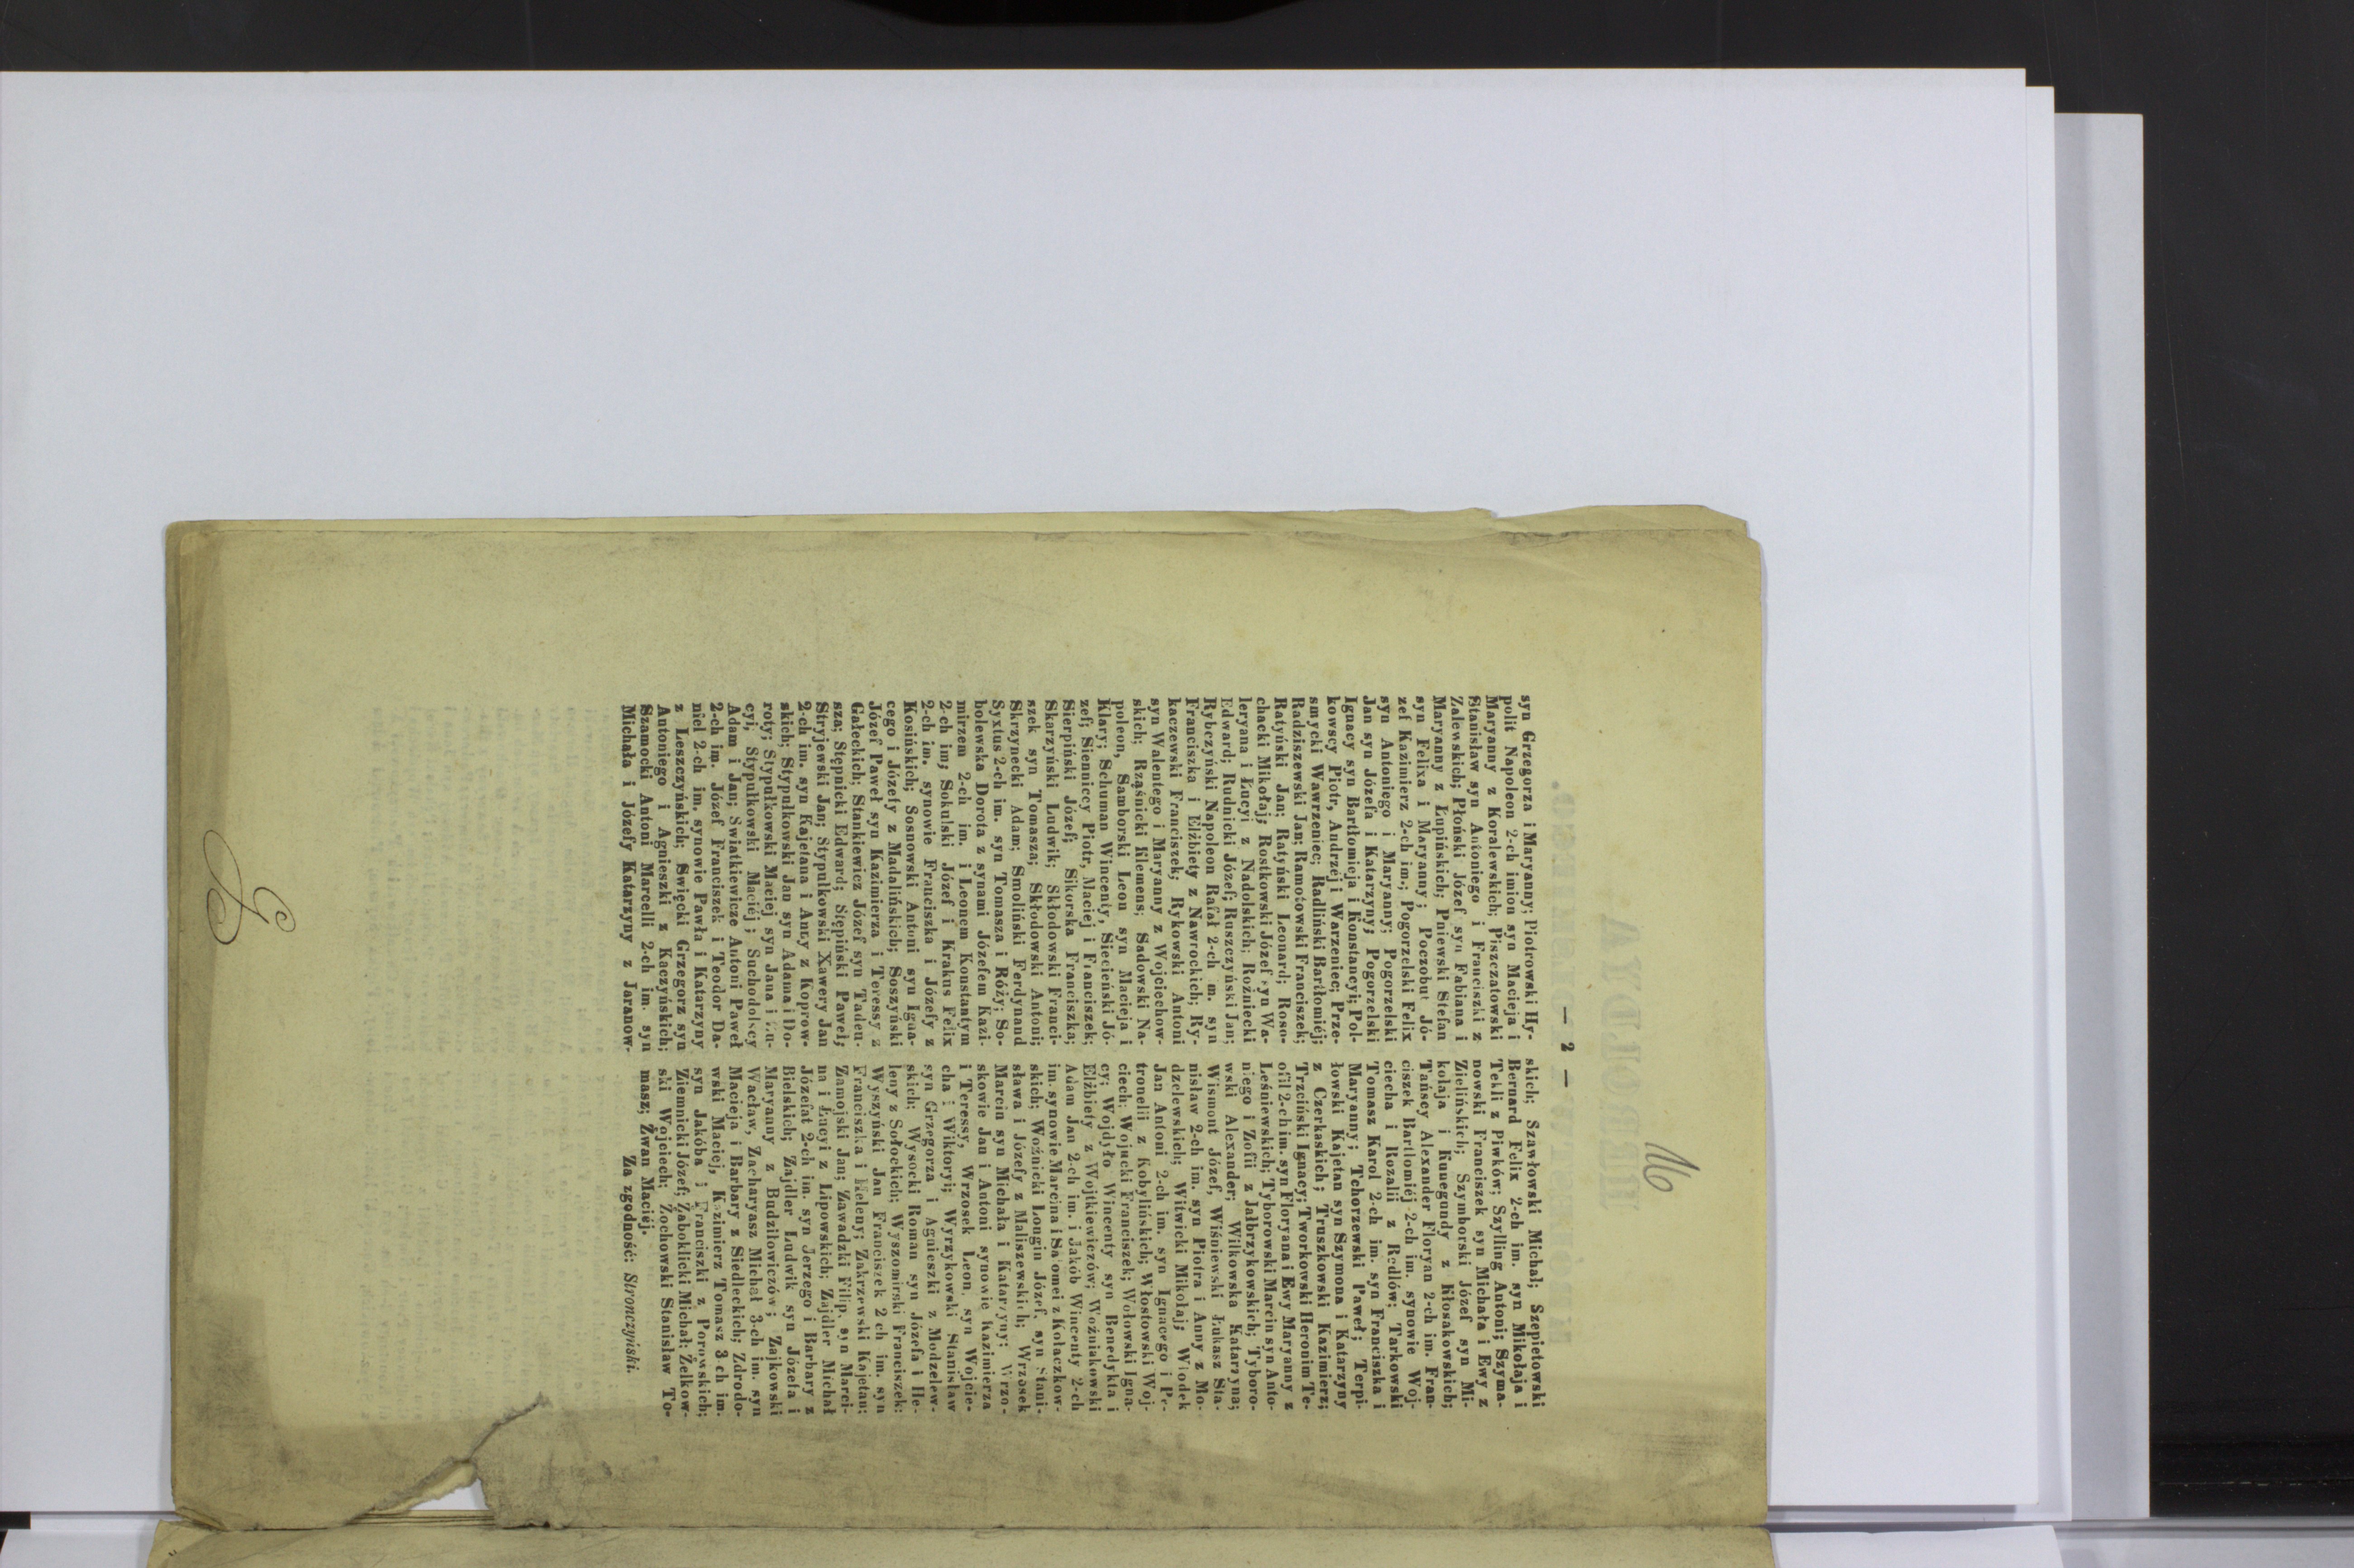 16
— 2 —
syn Grzegorza i Maryanny; Piotrowski Hy-
polit Napoleon 2-ch imion syn Macieja i
Maryanny z Koralewskich; Piszczatowski
Stanisław syn Antoniego i Franciszki z
Zalewskich; Płoński Józef syn Fabiana i
Maryanny z Łupińskich; Pniewski Stefan
syn Felixa i Maryanny; Poczobut Jó-
zef Kazimierz 2-ch im.; Pogorzelski Felix
syn Antoniego i Maryanny; Pogorzelski
Jan syn Józefa i Katarzyny; Pogorzelski
Ignacy syn Bartłomieja i Konstancyi; Pol-
kowscy Piotr, Andrzej i Warzeniec; Prze-
smycki Wawrzeniec; Radliński Bartłomiéj;
Radziszewski Jan; Ramotowski Franciszek;
Ratyński Jan; Ratyński Leonard; Roso-
chacki Mikołaj; Rostkowski Józef syn Wa-
leryana i Łucyi z Nadolskich; Rozniecki
Edward; Rudnicki Józef; Ruszczyński Jan;
Rybczyński Napoleon Rafał 2-ch m. syn
Franciszka i Elżbiety z Nawrockich; Ry-
kaczewski Franciszek, Rykowski Antoni
syn Walentego i Maryanny z Wojciechow-
skich; Rząśnicki Klemens; Sadowski Na-
poleon, Samborski Leon syn Macieja i
Klary; Schuman Wincenty, Siecieński Jó-
zef; Sienniccy Piotr, Maciej i Franciszek;
Sierpiński Józef; Sikorska Franciszka;
Skarzyński Ludwik; Skłodowski Franci-
szek syn Tomasza; Skłodowski Antoni;
Skrzynecki Adam; Smoliński Ferdynand
Syxtus 2-ch im. syn Tomasza i Róży; So-
bolewska Dorota z synami Józefem Kazi-
mirzem 2-ch im. i Leonem Konstantym
2-ch im; Sokulski Józef i Krakus Felix
2-ch im. synowie Franciszka i Józefy z
Kosińskich; Sosnowski Antoni syn Igna-
cego i Józefy z Madalińskich; Soszyński
Józef Paweł syn Kazimierza i Teressy z
Gałeckich; Stankiewicz Józef syn Tadeu-
sza; Stępnicki Edward; Stępiński Paweł;
Stryjewski Jan; Stypułkowski Xawery Jan
2-ch im. syn Kajetana i Anny z Koprow-
skich; Stypułkowski Jan syn Adama i Do-
roty; Stypułkowski Maciej syn Jana i Łu-
cyi; Stypułkowski Maciéj; Suchodolscy
Adam i Jan; Swiatkiewicze Antoni Paweł
2-ch im. Józef Franciszek i Teodor Da-
niel 2-ch im. synowie Pawła i Katarzyny
z Leszczyńskich; Święcki Grzegorz syn
Antoniego i Agnieszki z Kaczyńskich;
Szamocki Antoni Marcelli 2-ch im. syn
Michała i Józefy Katarzyny z Jaranow-
skich; Szawłowski Michał; Szepietowski
Bernard Felix 2-ch im. syn Mikołaja i
Tekli z Piwków; Szylling Antoni; Szyma-
nowski Franciszek syn Michała i Ewy z
Zielińskich; Szymborski Józef syn Mi-
kołaja i Kunegundy z Kłosakowskich;
Tańscy Alexander Floryan 2-ch im. Fran-
ciszek Bartłomiéj 2-ch im. synowie Woj-
ciecha i Rozalii z Redlów; Tarkowski
Tomasz Karol 2-ch im. syn Franciszka i
Maryanny; Tchorzewski Paweł; Terpi-
łowski Kajetan syn Szymona i Katarzyny
z Czerkaskich; Truszkowski Kazimierz;
Trzciński Ignacy; Tworkowski Heronim Te-
ofil 2-ch im. syn Floryana i Ewy Maryanny z
Leśniewskich; Tyborowski Marcin syn Anto-
niego i Zofii z Jałbrzykowskich; Tyboro-
wski Alexander; Wilkowska Katarzyna;
Wismont Józef, Wiśniewski Łukasz Sta-
nisław 2-ch im. syn Piotra i Anny z Mo-
dzelewskich; Witwicki Mikołaj; Włodek
Jan Antoni 2-ch im. syn Ignacego i Pe-
tronelii z Kobylińskich; Włostowski Woj-
ciech; Wojucki Franciszek; Wołowski Igna-
cy; Wojdyło Wincenty syn Benedykta i
Elżbiety z Wojtkiewiczów; Woźniakowski
Adam Jan 2-ch im. i Jakób Wincenty 2-ch
im. synowie Marcina i Salomei z Kołaczkow-
skich; Woźnicki Longin Józef, syn Stani-
sława i Józefy z Maliszewskich; Wrzosek
Marcin syn Michała i Katarzyny; Wrzo-
skowie Jan i Antoni synowie Kazimierza
i Teressy, Wrzosek Leon, syn Wojcie-
cha i Wiktoryi; Wyrzykowski Stanisław
syn Grzegorza i Agnieszki z Modzelew-
skich; Wysocki Roman syn Józefa i He-
leny z Sołockich; Wyszomirski Franciszek;
Wyszyński Jan Franciszek 2 ch im. syn
Franciszka i Heleny; Zakrzewski Kajetan;
Zamojski Jan; Zawadzki Filip, syn Marci-
na i Łucyi z Lipowskich; Zajdler Michał
Józefat 2-ch im. syn Jerzego i Barbary z
Bielskich; Zajdler Ludwik syn Józefa i
Maryanny z Budziłowiczów; Zajkowski
Wacław, Zacharyasz Michał 3-ch im. syn
Macieja i Barbary z Siedleckich; Zdrodo-
wski Maciej, Kazimierz Tomasz 3 ch im.
syn Jakóba i Franciszki z Porowskich;
Ziemnicki Józef; Żaboklicki Michał; Żelkow-
ski Wojciech; Żochowski Stanisław To-
masz; Żwan Maciéj.
Za zgodność: Stronczyński.